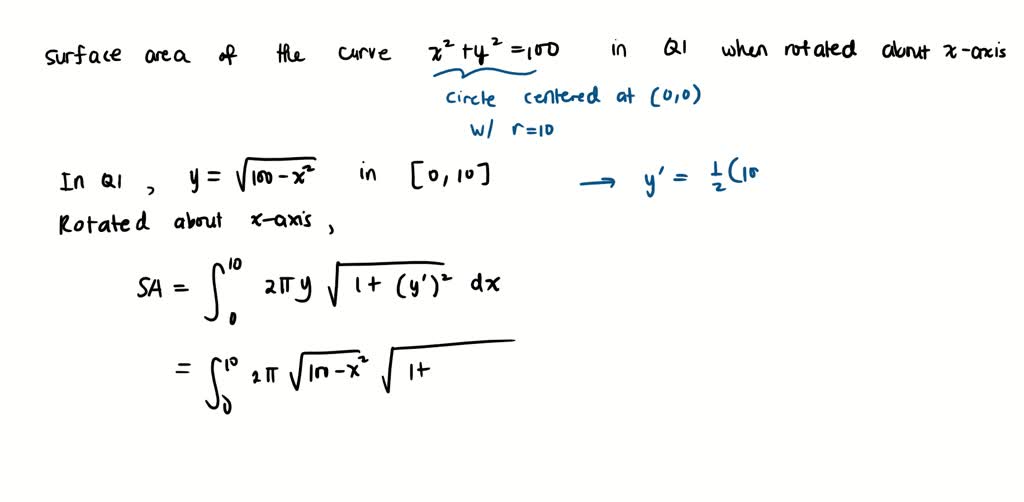 surface area of the curve x² + y² = 100 in Q1 when rotated about x-axis
circle centered at (0,0)
w/ r=10
In Q1, y = √(100 - x²) in [0, 10] → y' = 1/2 (10
Rotated about x-axis,
SA = ∫₀¹⁰ 2π y √(1 + (y')²) dx
= ∫₀¹⁰ 2π √(100 - x²) √(1+